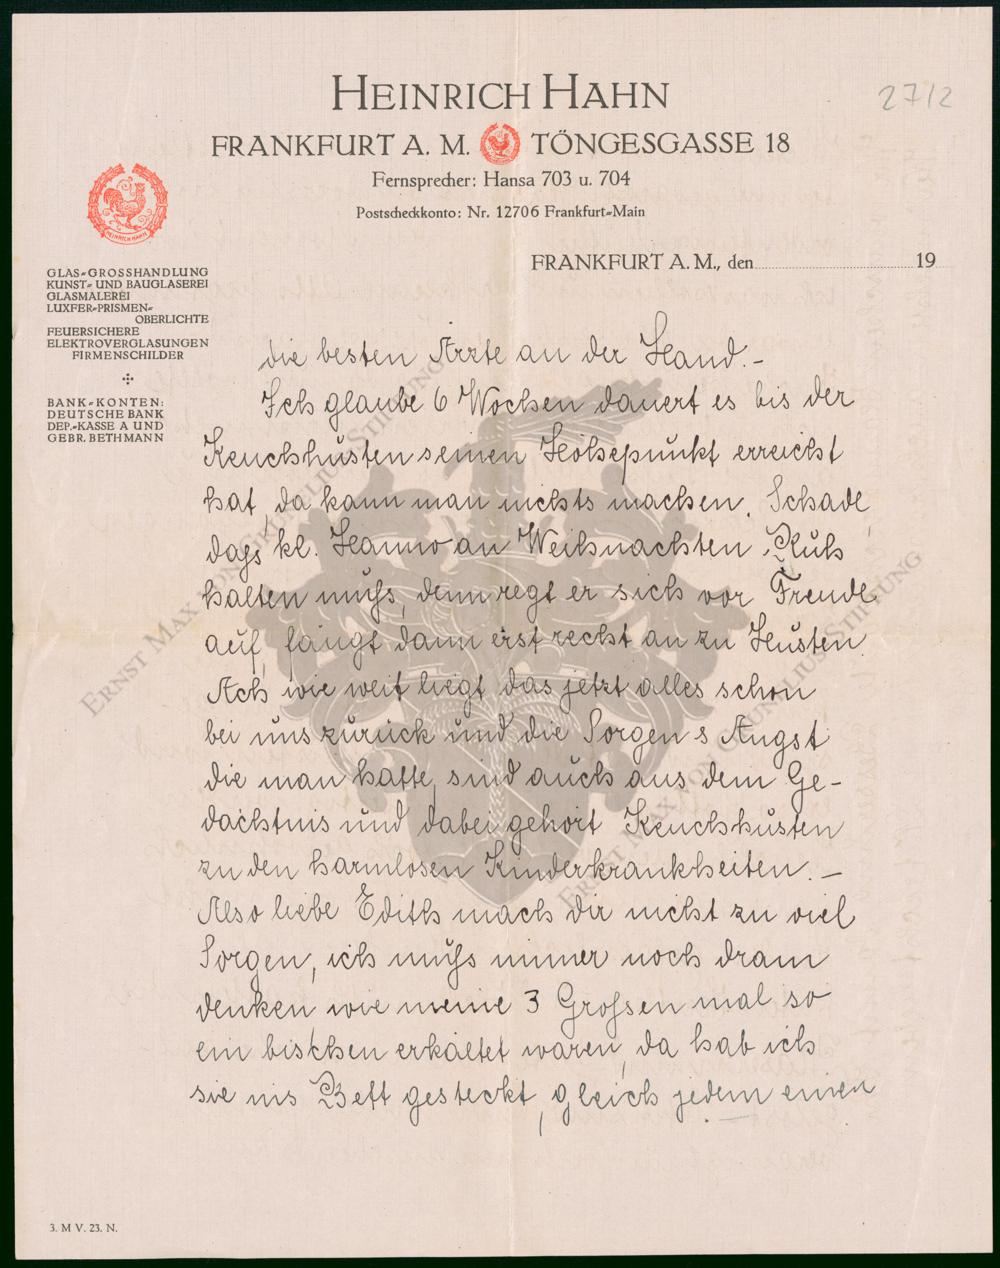 HEINRICH HAHN
27/2
FRANKFURT A. M. TÖNGESGASSE 18
Fernsprecher: Hansa 703 u. 704
Postscheckkonto: Nr. 12706 Frankfurt-Main
HEINRICH HAHN
FRANKFURT A. M., den 19
GLAS-GROSSHANDLUNG
KUNST- UND BAUGLASEREI
GLASMALEREI
LUXFER-PRISMEN-
OBERLICHTE
FEUERSICHERE
ELEKTROVERGLASUNGEN
FIRMENSCHILDER
BANK-KONTEN:
DEUTSCHE BANK
DEP.-KASSE A UND
GEBR. BETHMANN
die besten Ärzte an der Hand. –
Ich glaube 6 Wochen dauert es bis der
Keuchhusten seinen Höhepunkt erreicht
hat, da kann man nichts machen. Schade
dass kl. Hanno an Weihnachten Ruh
halten muss, denn regt er sich vor Freude
auf, fängt dann erst recht an zu Husten.
Ach wie weit liegt das jetzt alles schon
bei uns zurück und die Sorgen & Angst
die man hatte, sind auch aus dem Ge-
dächtnis und dabei gehört Keuchhusten
zu den harmlosen Kinderkrankheiten. –
Also liebe Edith mach dir nicht zu viel
Sorgen, ich muss immer noch dran
denken wie meine 3 Grossen mal so
ein bischen erkältet waren, da hab ich
sie ins Bett gesteckt, gleich jedem einen
3. M V. 23. N.
ERNST MAX VON GRUNELIUS-STIFTUNG
ERNST MAX VON GRUNELIUS-STIFTUNG